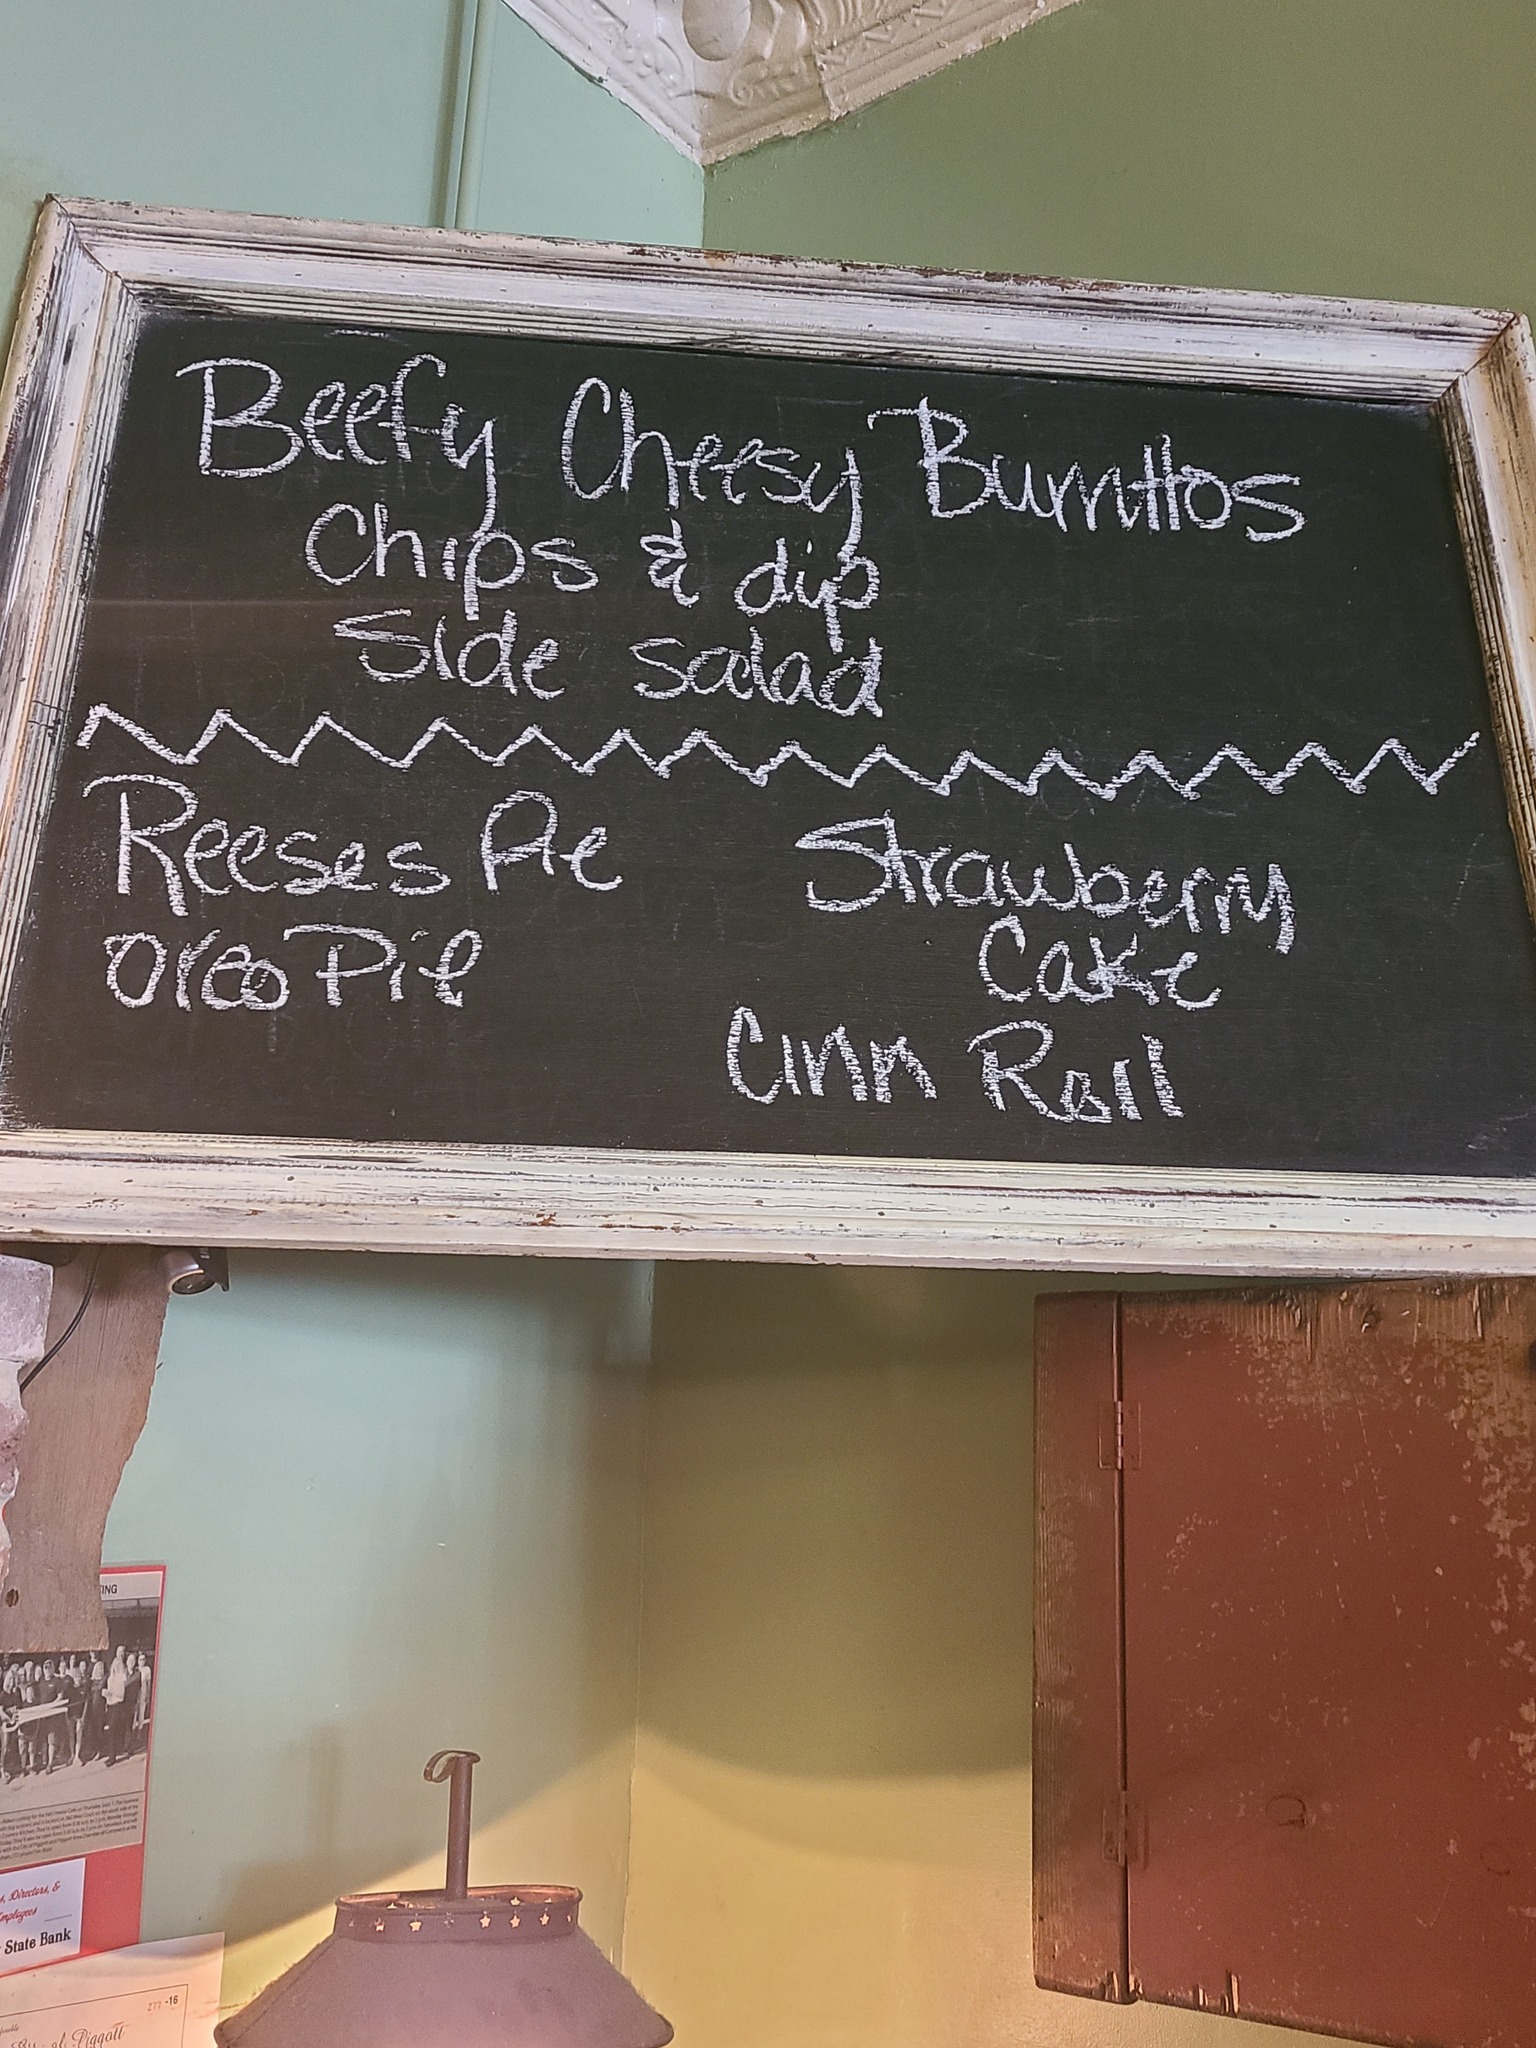 Beefy Cheesy Burrittos
Chips & dip
Side salad
Reeses Pie
Oreo Pie
Strawberry
Cake
Cinn Roll
TING
s, Directors, &
Employees
State Bank
277-16
City of Piggott